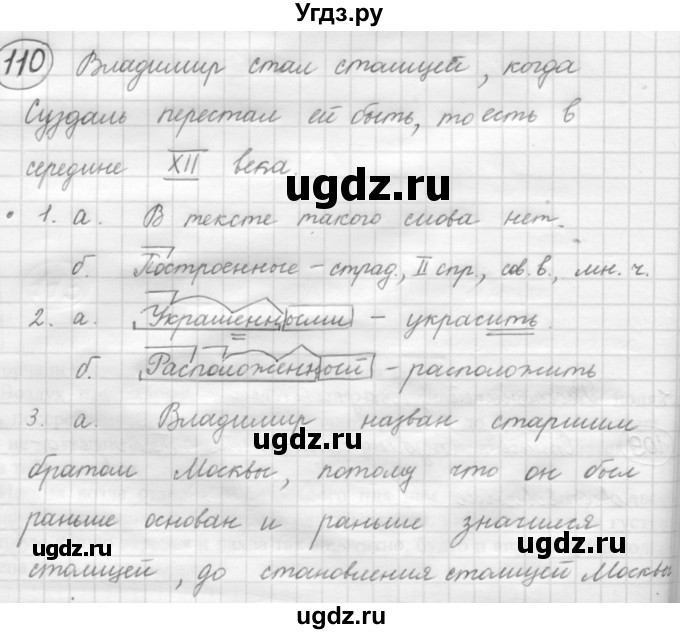 Угдз.ру
110 Владимир стал столицей, когда
Суздаль перестал ей быть, то есть в
середине XII века
ugdz.ru
• 1. а. В тексте такого слова нет.
б. Построенные – страд., II спр., сов. в., мн. ч.
2. а. Украшенными – украсить.
б. Расположенный – расположить
3. а. Владимир назван старшим
ugdz.ru
братом Москвы, потому что он был
раньше основан и раньше значился
ugdz.ru
столицей, до становления столицей Москвы
ugdz.ru